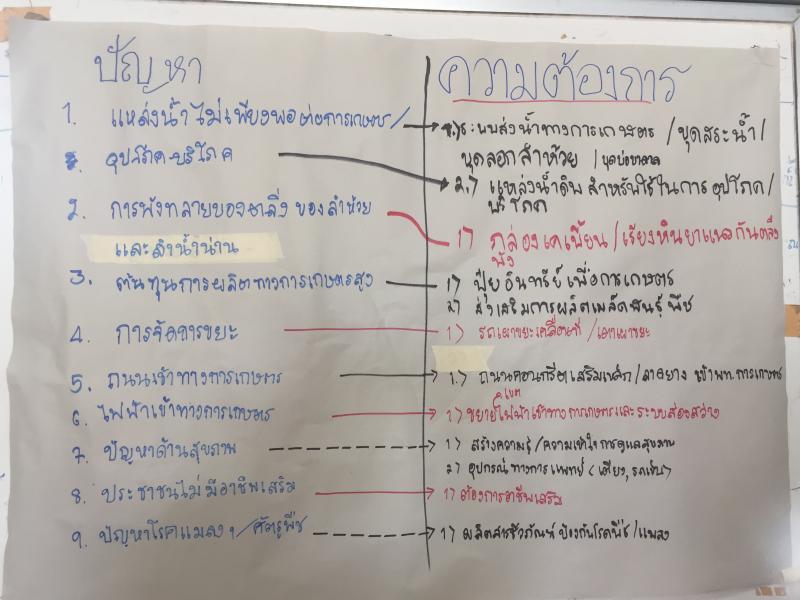 ปัญหา
ความต้องการ
1. แหล่งน้ำไม่เพียงพอต่อการเกษตร/
อุปโภค-บริโภค
2. การพังทลายของตลิ่ง ของลำห้วย
และลำน้ำน่าน
3. ต้นทุนการผลิตทางการเกษตรสูง
4. การจัดการขยะ
5. ถนนเข้าทางการเกษตร
6. ไฟฟ้าเข้าทางการเกษตร
7. ปัญหาด้านสุขภาพ
8. ประชาชนไม่มีอาชีพเสริม
9. ปัญหาโรคแมลง ๆ/ศัตรูพืช
ระบบส่งน้ำทางการเกษตร / ขุดสระน้ำ/
ขุดลอกลำห้วย / ขุดบ่อบาดาล
2.) แหล่งน้ำดิบ สำหรับใช้ในการ อุปโภค/
บริโภค
1) กล่องเกเบี้ยน/เรียงหินยาแนวกันตลิ่ง
พัง
1) ปุ๋ยอินทรีย์ เพื่อการเกษตร
2) ส่งเสริมการผลิตเมล็ดพันธุ์พืช
1) รถเผาขยะเคลื่อนที่ /เตาเผาขยะ
1.) ถนนคอนกรีตเสริมเหล็ก/ลาดยาง เข้าพท.การเกษตร
1) ขยายเขตไฟฟ้าเข้าทางการเกษตรและระบบส่องสว่าง
1) สร้างความรู้/ความเข้าใจ การดูแลสุขภาพ
2) อุปกรณ์ทางการแพทย์ (เตียง,รถเข็น)
1) ต้องการอาชีพเสริม
1) ผลิตสารชีวภัณฑ์ ป้องกันโรคพืช/แมลง